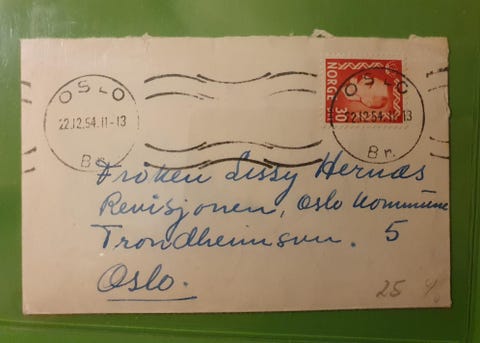 OSLO
22.12.54.11-13
Br.
NORGE
30
OSLO
22.12.54.11-13
Br.
Frøken Lissy Hernæs
Revisjonen, Oslo Kommune
Trondheimsvn. 5
Oslo.
25